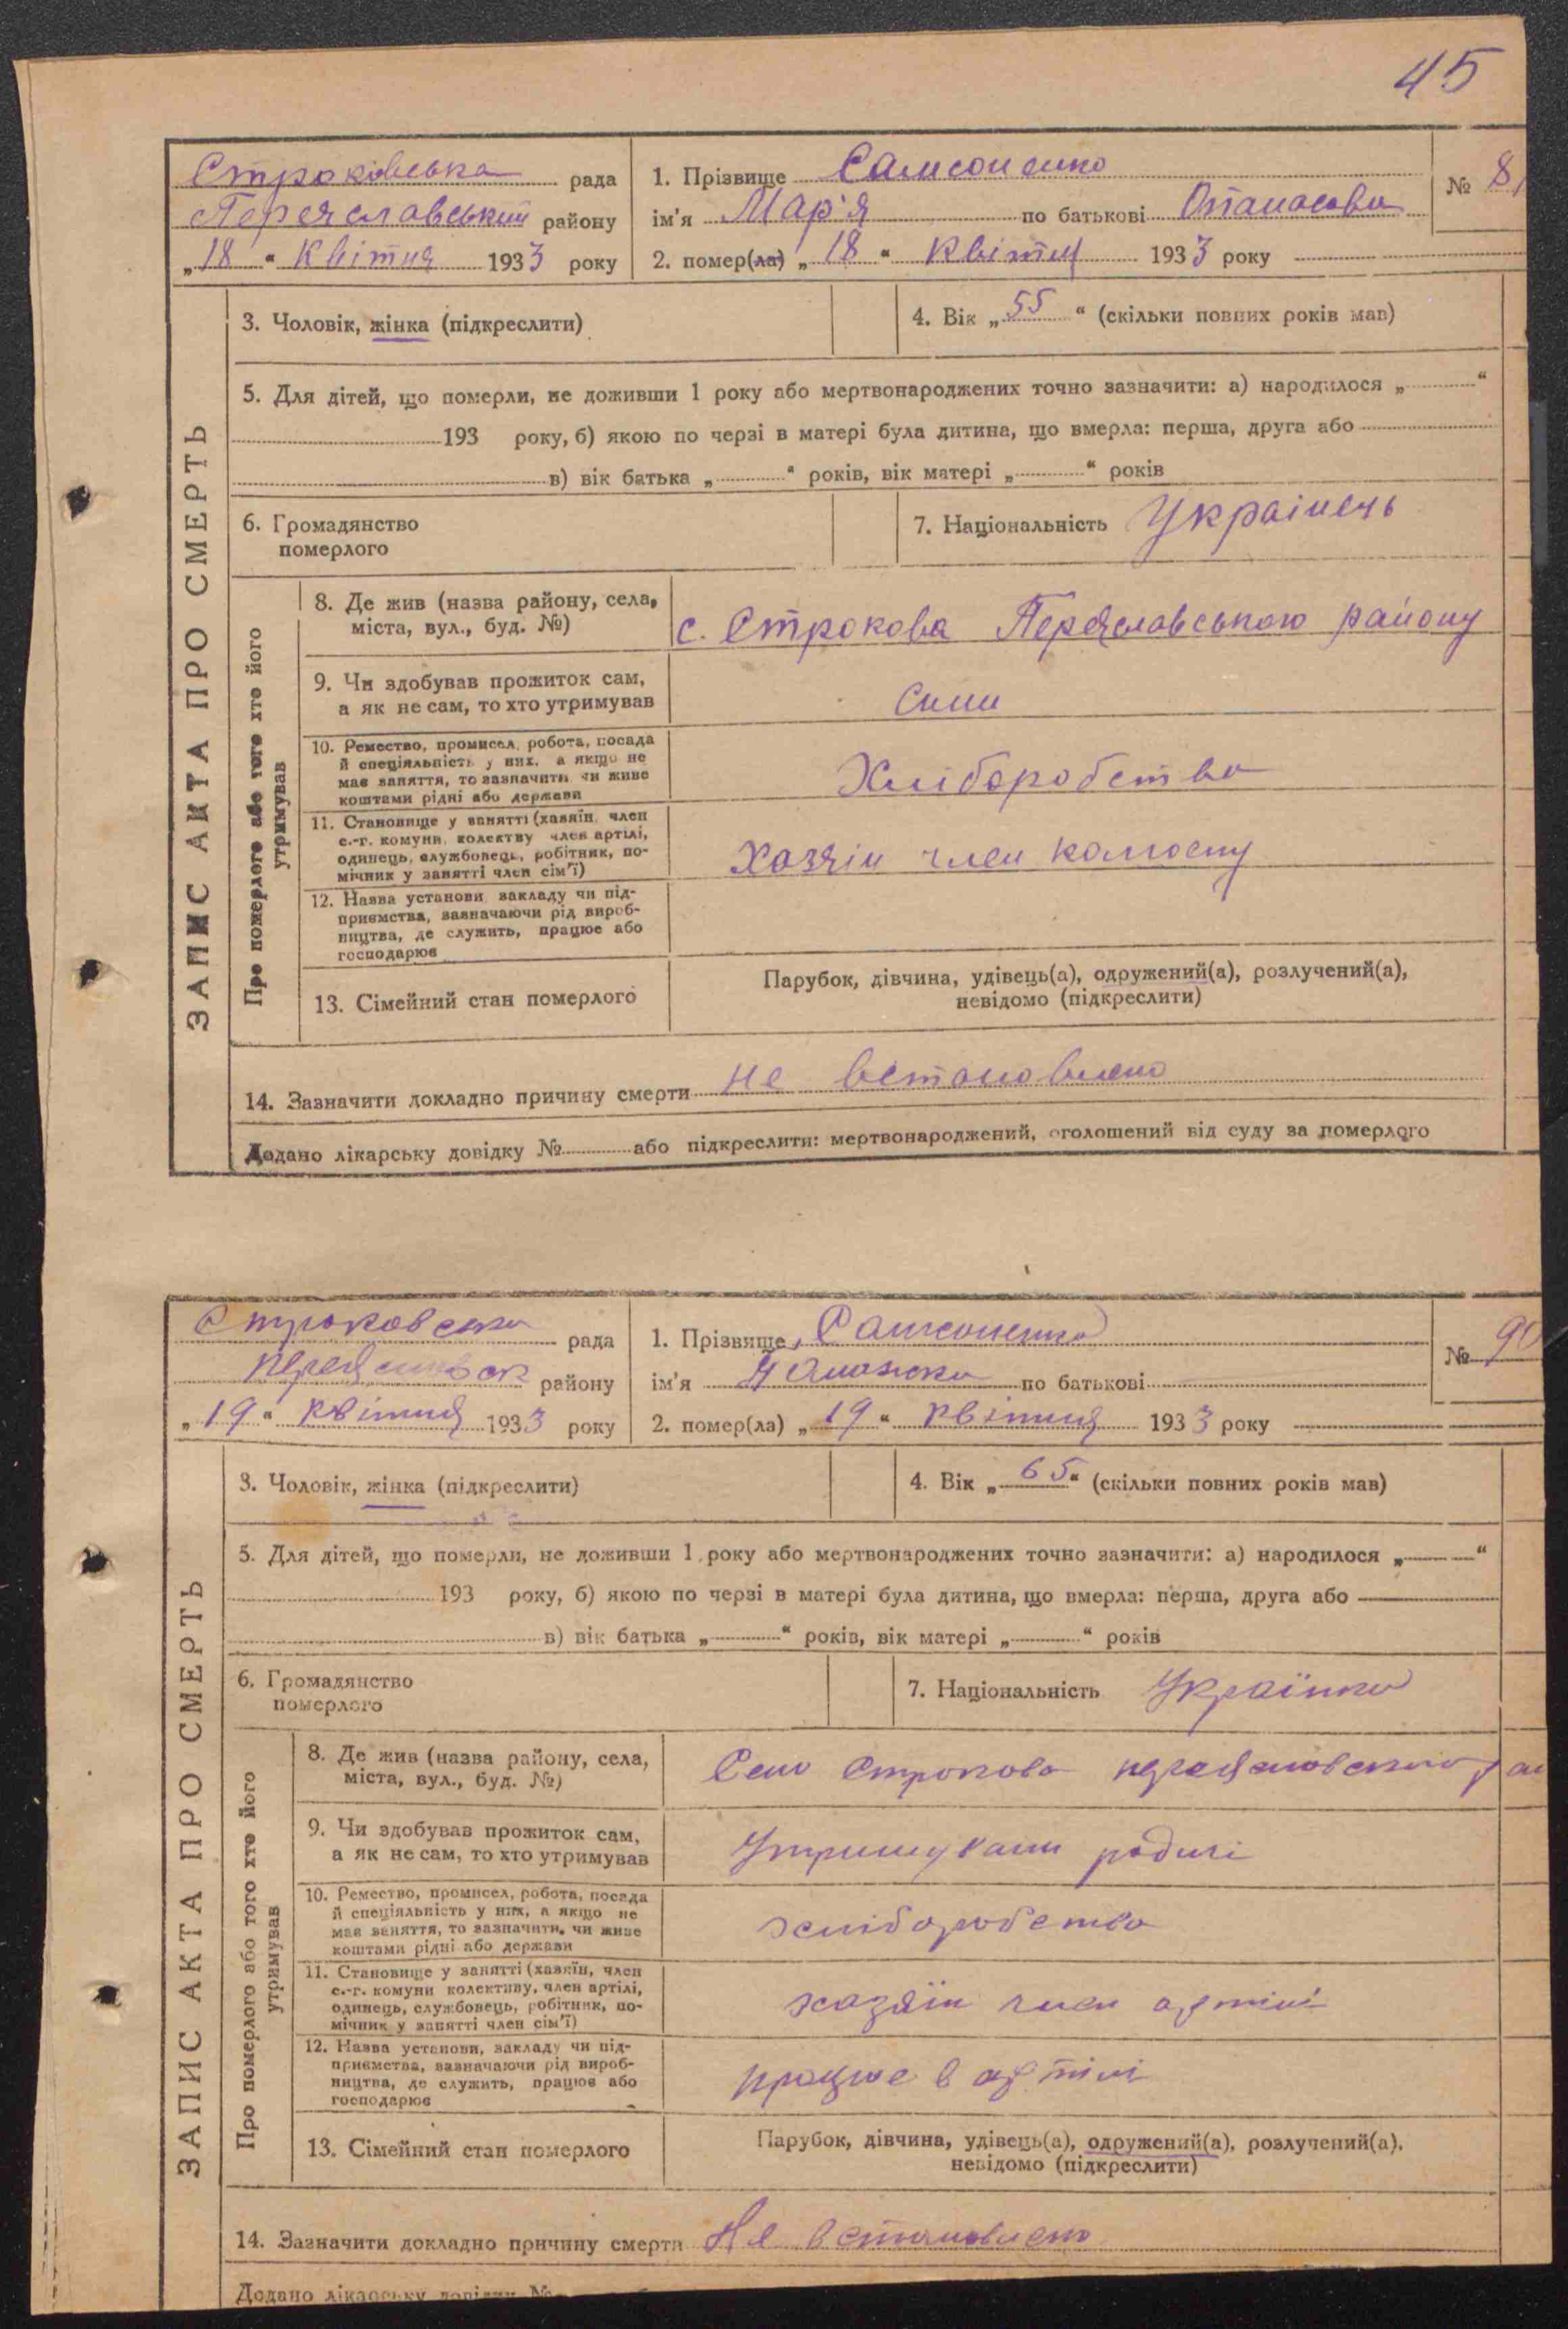 45
ЗАПИС АКТА ПРО СМЕРТЬ
Строківська рада
Переяславський району
„18“ Квітня 1933 року
1. Прізвище Самсоненко
ім'я Мар'я по батькові Опанасова
2. помер(ла) „18“ Квітня 1933 року
№ 8
3. Чоловік, жінка (підкреслити)
4. Вік „55“ (скільки повних років мав)
5. Для дітей, що померли, не доживши 1 року або мертвонароджених точно зазначити: а) народилося „ “
193 року, б) якою по черзі в матері була дитина, що вмерла: перша, друга або
в) вік батька „ “ років, вік матері „ “ років
6. Громадянство
померлого
7. Національність Українець
Про померлого або того хто його
утримував
8. Де жив (назва району, села,
міста, вул., буд. №)
с. Строкова Переяславського району
9. Чи здобував прожиток сам,
а як не сам, то хто утримував
Сами
10. Ремество, промисел, робота, посада
й спеціяльність у них, а якщо не
має заняття, то зазначити чи живе
коштами рідні або держави
Хліборобство
11. Становище у занятті (хазяїн, член
с.-г. комуни, колективу член артілі,
одинець, службовець, робітник, по-
мічник у занятті член сім'ї)
Хазяін член колгоспу
12. Назва установи, закладу чи під-
приємства, зазначаючи рід вироб-
ництва, де служить, працює або
господарює
13. Сімейний стан померлого
Парубок, дівчина, удівець(а), одружений(а), розлучений(а),
невідомо (підкреслити)
14. Зазначити докладно причину смерти не встановлено
Додано лікарську довідку № або підкреслити: мертвонароджений, оголошений від суду за померлого
ЗАПИС АКТА ПРО СМЕРТЬ
Строковська рада
Переяславск району
„19“ квітня 1933 року
1. Прізвище Самсоненко
ім'я по батькові
2. помер(ла) „19“ квітня 1933 року
№ 90
3. Чоловік, жінка (підкреслити)
4. Вік „65“ (скільки повних років мав)
5. Для дітей, що померли, не доживши 1 року або мертвонароджених точно зазначити: а) народилося „ “
193 року, б) якою по черзі в матері була дитина, що вмерла: перша, друга або
в) вік батька „ “ років, вік матері „ “ років
6. Громадянство
померлого
7. Національність Українка
Про померлого або того хто його
утримував
8. Де жив (назва району, села,
міста, вул., буд. №)
Село Строкова переяславского
9. Чи здобував прожиток сам,
а як не сам, то хто утримував
Утримували родичі
10. Ремество, промисел, робота, посада
й спеціяльність у них, а якщо не
має заняття, то зазначити, чи живе
коштами рідні або держави
хліборобство
11. Становище у занятті (хазяїн, член
с.-г. комуни колективу, член артілі,
одинець, службовець, робітник, по-
мічник у занятті член сім'ї)
хазяїн член артілі
12. Назва установи, закладу чи під-
приємства, зазначаючи рід вироб-
ництва, де служить, працює або
господарює
працює в артілі
13. Сімейний стан померлого
Парубок, дівчина, удівець(а), одружений(а), розлучений(а),
невідомо (підкреслити)
14. Зазначити докладно причину смерти Не встановлено
Додано лікарську довідку №